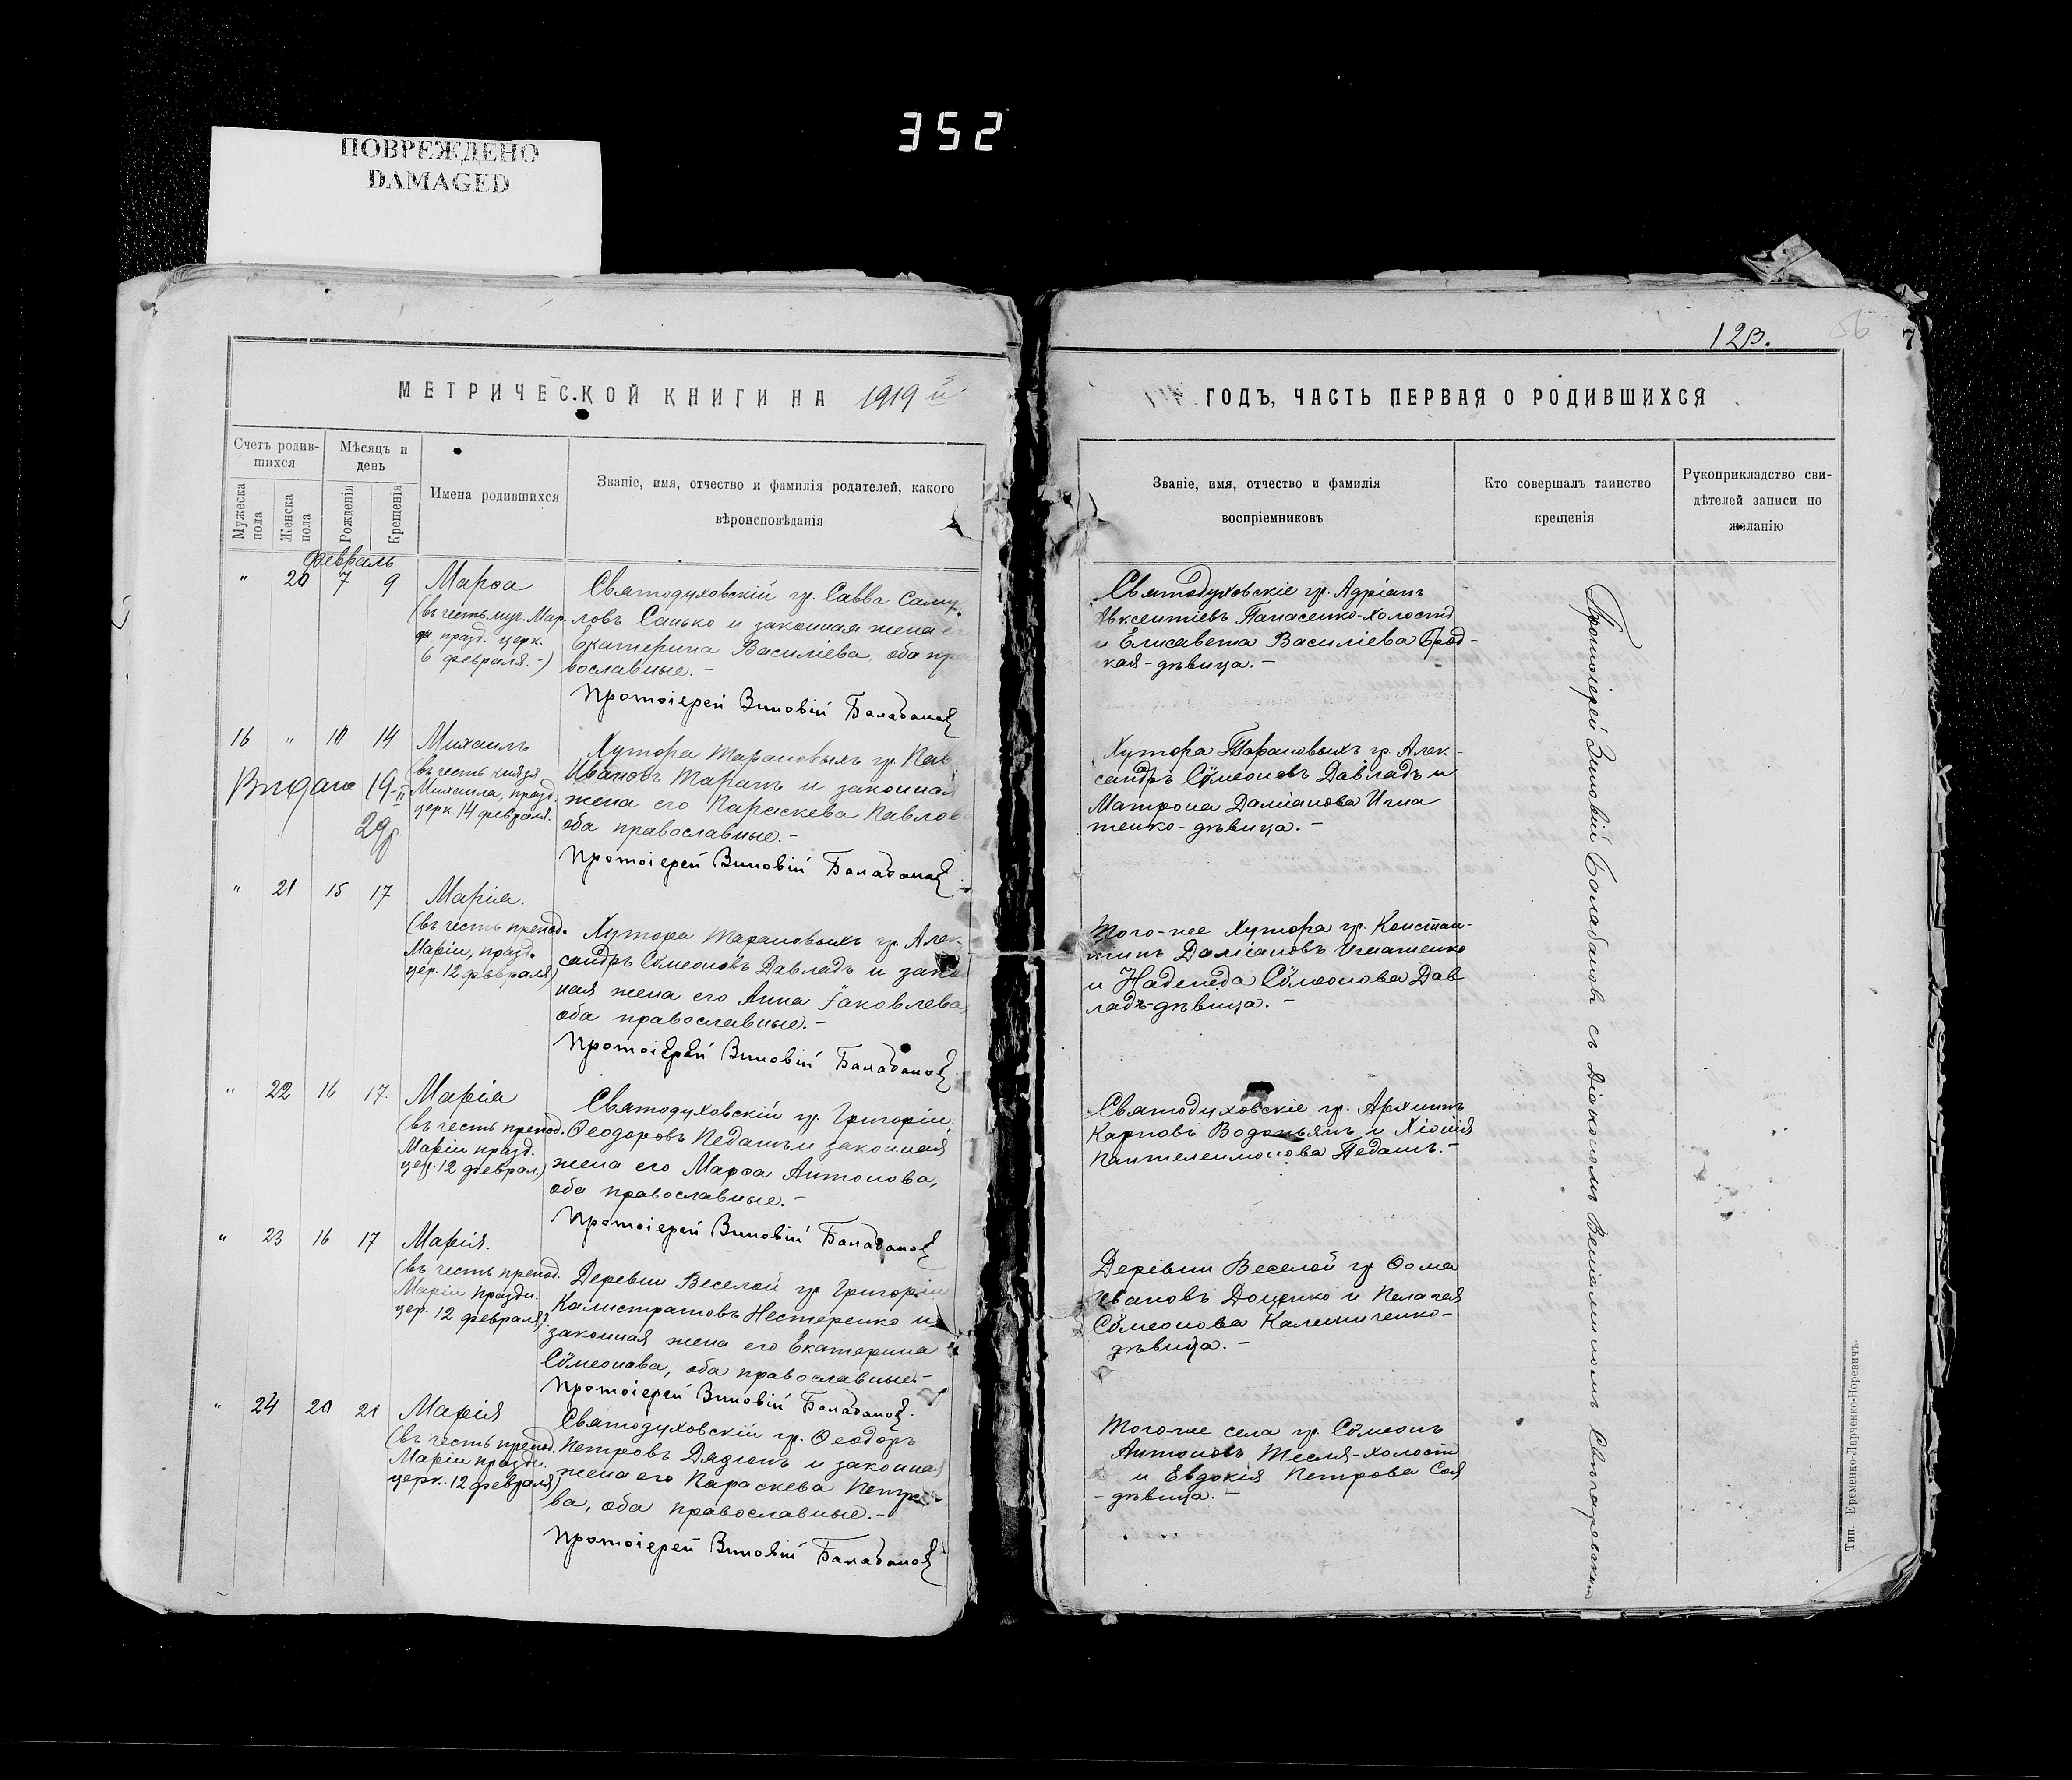 352
ПОВРЕЖДЕНО
DAMAGED
12В.
56
7
МЕТРИЧЕСКОЙ КНИГИ НА 1919 й
Счетъ родив-
шихся
Мѣсяцъ и
день
Мужеска
пола
Женска
пола
Рожденія
Крещенія
Имена родившихся
Званіе, имя, отчество и фамилія родителей, какого
вѣроисповѣданія
Февраль
" 20 7 9 Марѳа
(въ честь муч. Мар-
ѳы, празд. церк.
6 февраля.-)
Святодуховскій гр. Савва Саму-
ловъ Санько и законная жена
Екатерина Василіева, оба пра
вославные.-
Протоіерей Зиновій Балабановъ
16 " 10 14 Михаилъ
(въ честь князя
Михаила, празд.
церк. 14 февраля.
Видано 19-II
29 г.
Хутора Тарановыхъ гр. Пав
Ивановъ Таранъ и законная
жена его Параскева Павлова
оба православные.-
Протоіерей Зиновій Балабановъ
" 21 15 17 Марія.
(въ честь препод.
Маріи, празд.
цер. 12 февраля)
Хутора Тарановыхъ гр. Алек-
сандръ Сѷмеоновъ Давладъ и закон
ная жена его Анна Іаковлева,
оба православные.-
Протоіерей Зиновій Балабановъ
" 22 16 17. Марія
(въ честь препод.
Маріи празд.
цер. 12 феврал.)
Святодуховскій гр. Григорій
Ѳеодоровъ Педашъ и законная
жена его Марѳа Антонова,
оба православные.-
Протоіерей Зиновій Балабановъ
" 23 16 17 Марія.
(въ честь препод.
Маріи праздн.
цер. 12 февраля)
Деревни Веселой гр. Григорій
Калистратовъ Нестеренко и
законная жена его Екатерина
Сѷмеонова, оба православные.-
Протоіерей Зиновій Балабановъ.
" 24 20 21 Марія
(въ честь препод.
Маріи праздн.
церк. 12 февраля)
Святодуховскій гр. Ѳеодоръ
Петровъ Дядюнъ и законная
жена его Параскева Петро-
ва, оба православные.-
Протоіерей Зиновій Балабановъ
ГОДЪ, ЧАСТЬ ПЕРВАЯ О РОДИВШИХСЯ
Званіе, имя, отчество и фамилія
воспріемниковъ
Кто совершалъ таинство
крещенія
Рукоприкладство сви-
дѣтелей записи по
желанію
Святодуховскіе гр. Адріанъ
Авксентіевъ Панасенко-холостъ
и Елисавета Василіева Брод-
кая-дѣвица.-
Хутора Тарановыхъ гр. Алек-
сандръ Сѷмеоновъ Давладъ и
Матрона Даміанова Игна
тенко-дѣвица.-
Того-же Хутора гр. Констан-
тинъ Даміановъ Игнатенко
и Надежда Сѷмеонова Дав
ладъ-дѣвица.-
Святодуховскіе гр. Архипъ
Карповъ Водопьянъ и Хіонія
Пантелеимонова Педашъ.-
Деревни Веселой гр. Ѳома
Ивановъ Доценко и Пелагея
Сѷмеонова Калениченко-
дѣвица.-
Того-же села гр. Сѷмеонъ
Антоновъ Тесля-холостъ
и Евдокія Петрова Соя
-дѣвица.-
Протоіерей Зиновій Балабановъ съ Діакономъ Веніаминомъ
Тип. Еременко-Ларченко-Норевичъ.